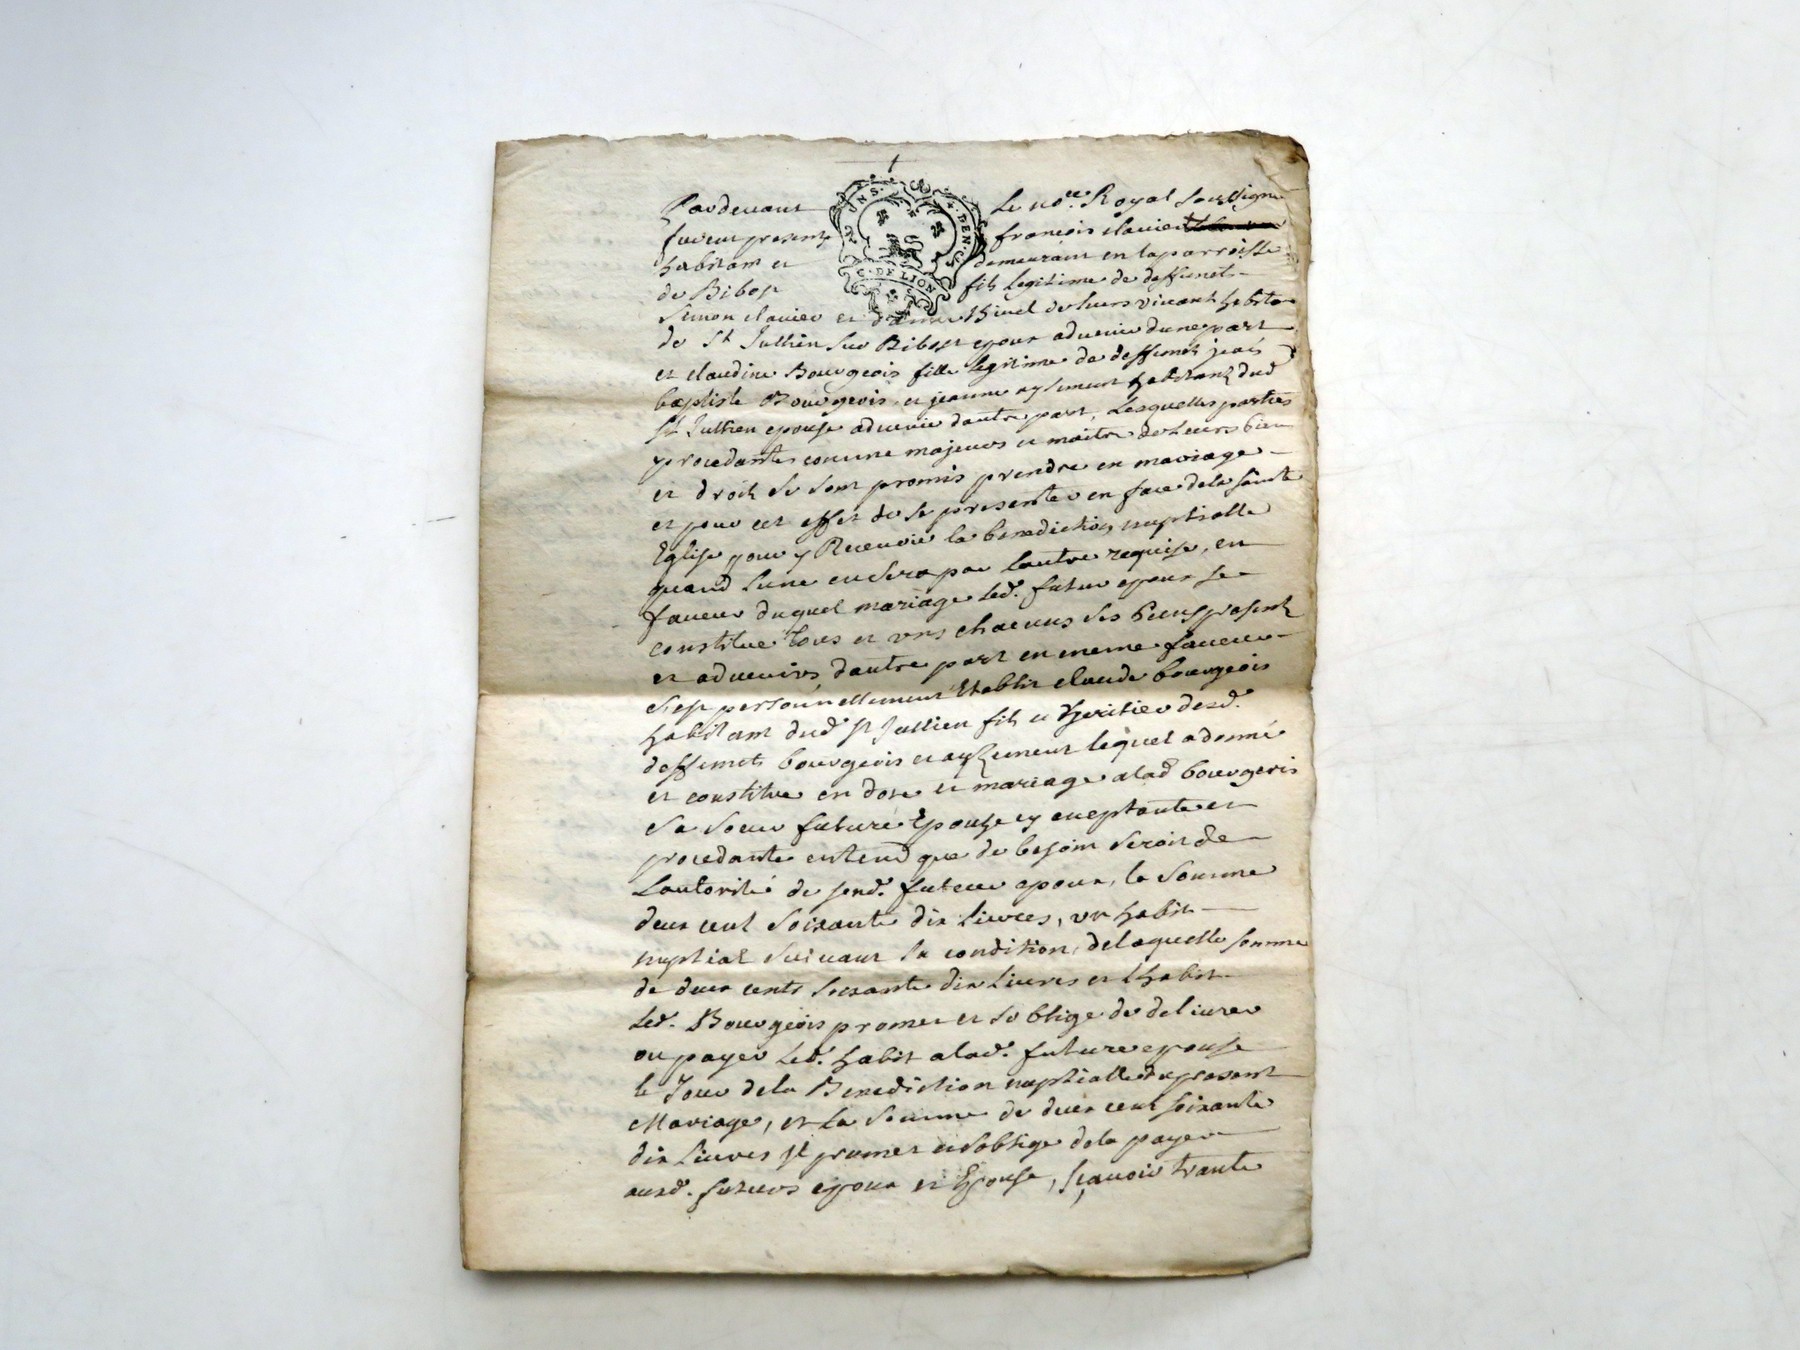 Pardevant Le no.re Royal soussigné
furent present francois clavier
habitant et demeurant en la parroisse
de Bibost fils legitime de deffunct
UN S. X DEN. G. DE LION
Simon clavier et vivant de leurs vivant habitans
de St Jullien sur Bibost epoux advenir dune part
et claudine Bourgeois fille legitime de deffuncts jean
baptiste Bourgeois et jeanne habitants dud
St Jullien epouse advenir dautre part, Lesquelles parties
procedantes comme majeurs et maitre de Leurs biens
et droits se sont promis prendre en mariage
et pour cet effet de se presenter en face de la sainte
Eglise pour y Recevoir la benediction nuptialle
quand lune en sera par lautre requise, en
faveur duquel mariage led. futur epoux se
constitue tous et uns chacuns ses biens presents
et advenirs, dautre part en meme faveur
sest personnellement etablit claude bourgeois
habitant dud St Jullien fils et heritier desd.
deffuncts bourgeois et lequel a donné
et constitue en dote et mariage a lad bourgeois
sa soeur future Epouse cy acceptante et
procedante entend que de besoin seroit de
Lautorité de sond. futeur epoux, la somme
deux cent soixante dix Livres, un habit
nuptial suivant sa condition, de laquelle somme
de deux cents soixante dix Livres et lhabit
Led. Bourgeois promet et soblige de delivrer
ou payer Led. habit a lad. future epouse
le Jour de la Benediction nuptialle du present
Mariage, et La somme de deux cent soixante
dix Livres Il promet et soblige de la payer
auxd. futurs epoux et Epouse, sçavoir trante